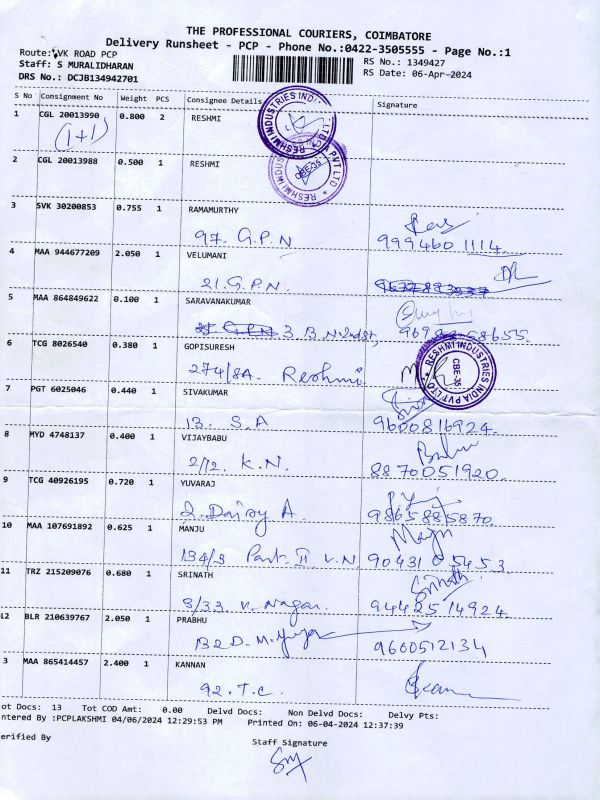 THE PROFESSIONAL COURIERS, COIMBATORE
Delivery Runsheet - PCP - Phone No.:0422-3505555 - Page No.:1
Route: VK ROAD PCP
Staff: S MURALIDHARAN
DRS No.: DCJB134942701
RS No.: 1349427
RS Date: 06-Apr-2024
S No Consignment No Weight PCS Consignee Details Signature
1 CGL 20013990 0.800 2 RESHMI
(1+1)
RESHMI INDUSTRIES INDIA PVT LTD
2 CGL 20013988 0.500 1 RESHMI
RESHMI INDUSTRIES INDIA PVT LTD CBE-35
3 SVK 30200853 0.755 1 RAMAMURTHY
97. G.P.N 9994601114
4 MAA 944677209 2.050 1 VELUMANI
21. G.P.N.
5 MAA 864849622 0.100 1 SARAVANAKUMAR
3 B
6 TCG 8026540 0.380 1 GOPISURESH
274/8A. Reshmi
RESHMI INDUSTRIES INDIA PVT LTD CBE-35
7 PGT 6025046 0.440 1 SIVAKUMAR
13. S.A 9600816924
8 MYD 4748137 0.400 1 VIJAYBABU
2/12. K.N. 8870051920
9 TCG 40926195 0.720 1 YUVARAJ
2. Dairy A. 9865885870
10 MAA 107691892 0.625 1 MANJU
134/3 Part II V.N 9043105453
11 TRZ 215209076 0.680 1 SRINATH
Srinath
3/33. V. Nagar. 9442514924
12 BLR 210639767 2.050 1 PRABHU
B2D. M. 9600512134
3 MAA 865414457 2.400 1 KANNAN
92. T.C.
ot Docs: 13 Tot COD Amt: 0.00 Delvd Docs: Non Delvd Docs: Delvy Pts:
ntered By :PCPLAKSHMI 04/06/2024 12:29:53 PM Printed On: 06-04-2024 12:37:39
erified By Staff Signature